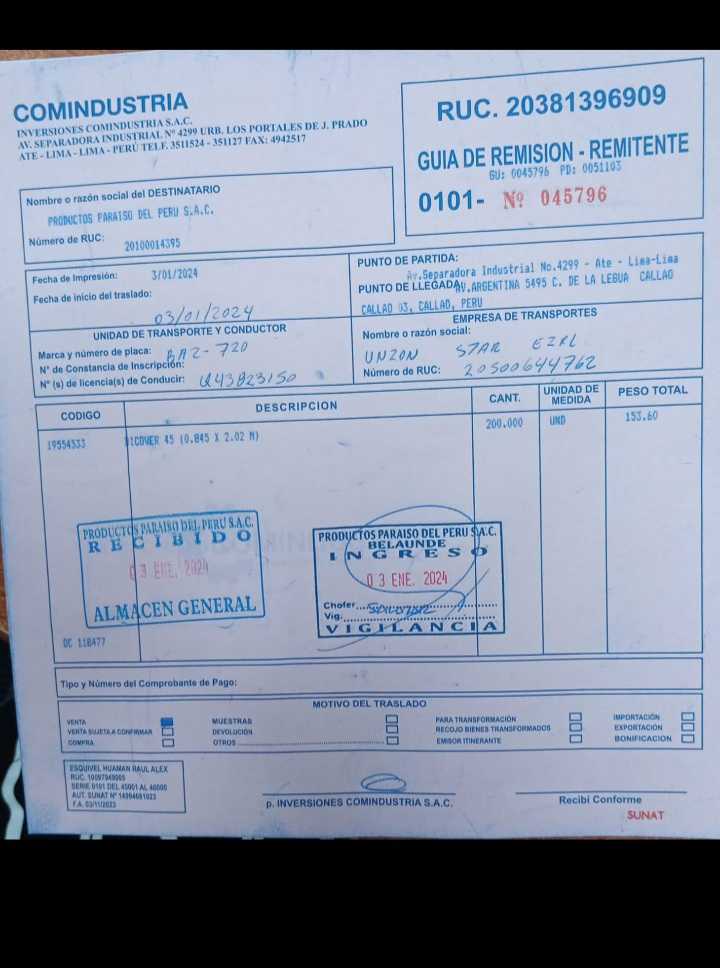 COMINDUSTRIA
INVERSIONES COMINDUSTRIA S.A.C.
AV. SEPARADORA INDUSTRIAL Nº 4299 URB. LOS PORTALES DE J. PRADO
ATE - LIMA - LIMA - PERÚ TELF. 3511524 - 351127 FAX: 4942517
RUC. 20381396909
GUIA DE REMISION - REMITENTE
GU: 0045796 PD: 0051103
0101- Nº 045796
Nombre o razón social del DESTINATARIO
PRODUCTOS PARAISO DEL PERU S.A.C.
Número de RUC: 20100014395
Fecha de Impresión: 3/01/2024
Fecha de inicio del traslado:
03/01/2024
PUNTO DE PARTIDA:
Av.Separadora Industrial No.4299 - Ate - Lima-Lima
PUNTO DE LLEGADA: AV.ARGENTINA 5495 C. DE LA LEGUA CALLAO
CALLAO 03, CALLAO, PERU
UNIDAD DE TRANSPORTE Y CONDUCTOR
Marca y número de placa: BAZ-720
N° de Constancia de Inscripción:
N° (s) de licencia(s) de Conducir: Q43823150
EMPRESA DE TRANSPORTES
Nombre o razón social:
UNION STAR EIRL
Número de RUC: 20500644762
CODIGO DESCRIPCION CANT. UNIDAD DE MEDIDA PESO TOTAL
19554533 1COVER 45 (0.845 X 2.02 M) 200.000 UND 153.60
PRODUCTOS PARAISO DEL PERU S.A.C.
RECIBIDO
03 ENE. 2024
ALMACEN GENERAL
PRODUCTOS PARAISO DEL PERU S.A.C.
BELAUNDE
INGRESO
03 ENE. 2024
Chofer
Vig:
VIGILANCIA
OC 118477
Tipo y Número del Comprobante de Pago:
MOTIVO DEL TRASLADO
VENTA MUESTRAS PARA TRANSFORMACIÓN IMPORTACIÓN
VENTA SUJETA A CONFIRMAR DEVOLUCIÓN RECOJO BIENES TRANSFORMADOS EXPORTACIÓN
COMPRA OTROS EMISOR ITINERANTE BONIFICACION
ESQUIVEL HUAMAN RAUL ALEX
RUC.
SERIE 0101 DEL 45001 AL
AUT. SUNAT Nº
F.A. 03/11/2023
p. INVERSIONES COMINDUSTRIA S.A.C.
Recibí Conforme
SUNAT